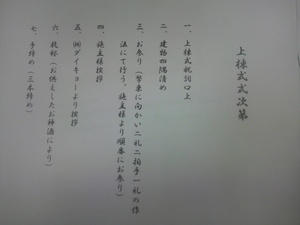 上棟式式次第
一、上棟式祝詞口上
二、建物四隅清め
三、お参り（祭壇に向かい二礼二拍手一礼の作
法にて行う。施主様より順番にお参り）
四、施主様挨拶
五、㈱ダイキョーより挨拶
六、乾杯（お供えしたお神酒により）
七、手締め（三本締め）